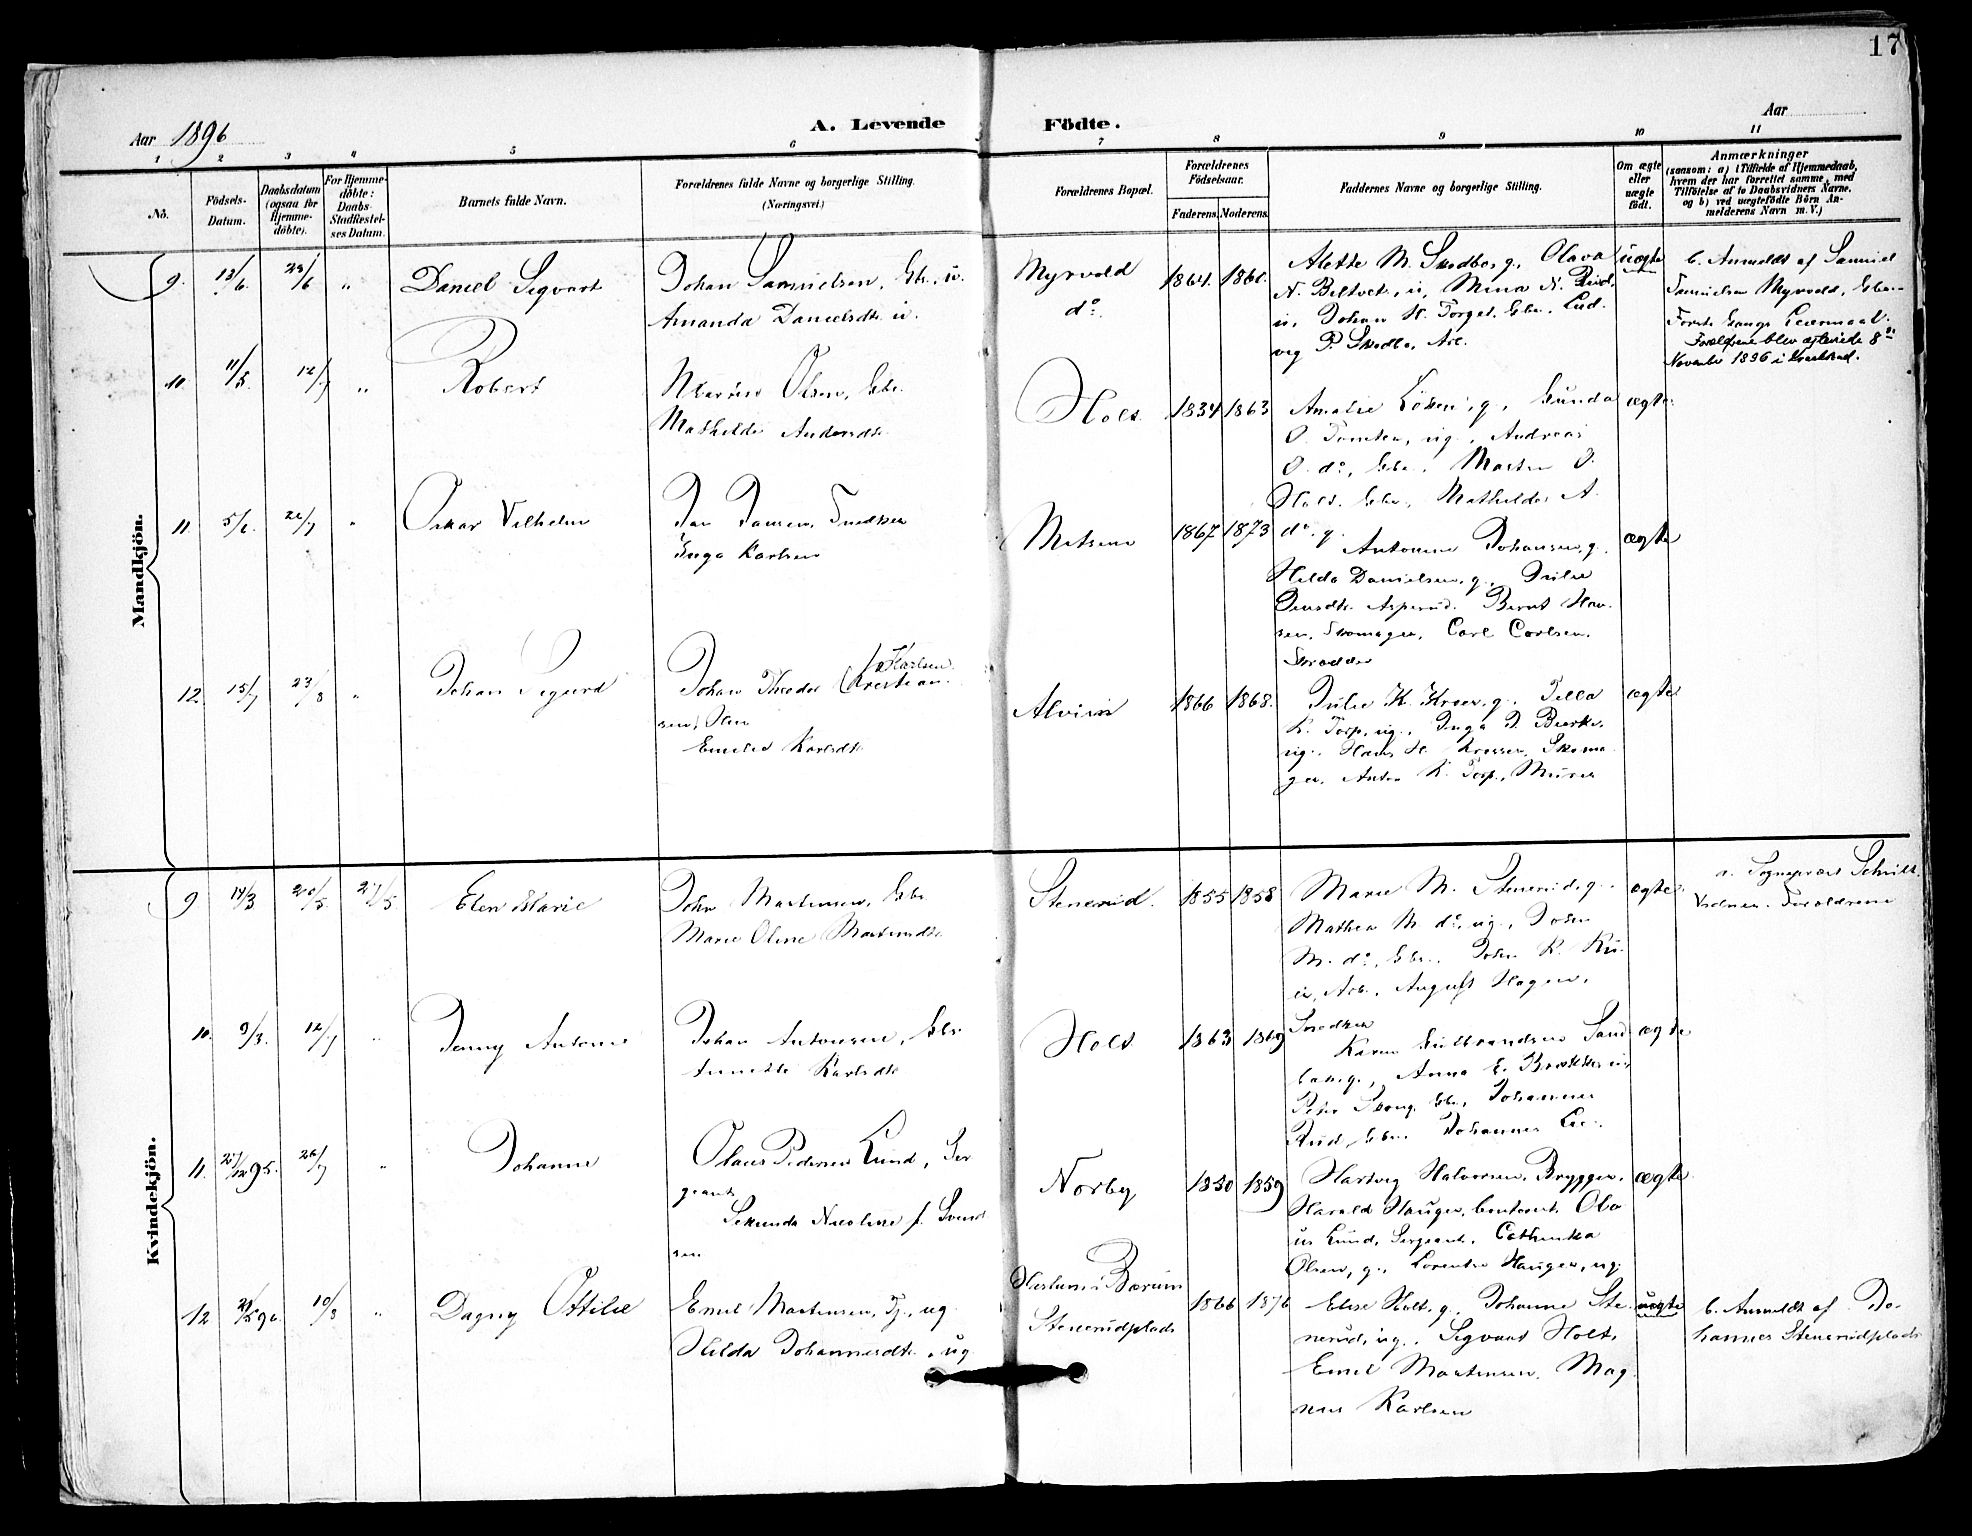 17
Aar 1896
A. Levende Födte.
Aar
1 2 3 4 5 6 7 8 9 10 11
No.
Födsels-Datum.
Daabsdatum (ogsaa for Hjemme-döbte).
For Hjemme-döbte: Daabs-Stadfæstelses Datum.
Barnets fulde Navn.
Forældrenes fulde Navne og borgerlige Stilling.
(Næringsvei.)
Forældrenes Bopæl.
Forældrenes Födselsaar.
Faderens. Moderens.
Faddernes Navne og borgerlige Stilling.
Om ægte eller uægte födt.
Anmærkninger
(saasom: a) i Tilfælde af Hjemmedaab,
hvem der har forrettet samme, med
Tilföielse af to Daabsvidners Navne,
og b) ved uægtefödte Börn An-
melderens Navn m. V.)
Mandkjön.
9. 13/6. 29/6 " Daniel Sigvart
Johan Samuelsen, Gbr., u.
Amanda Danielsdt. u.
Myrvold
do.
1864. 1861.
Alette M. Skodbo, g., Olava
N. Biltvet, u, Mina N. Rud,
u, Johan H. Torget, Gbr., Lud-
vig P. Skodbo, Arb.
uægte
b. Anmeldt af Samuel
Samuelsen Myrvold, Gbr.
Første Gangs Leiermaal.
Forældrene blev ægteviede 8de
November 1896 i Kraakstad.
10 11/5. 12/7 " Robert
Marius Olsen, Gbr.
Mathilde Andersdt.
Holt
1834 1863
Amalie Løken, g., Gunda
O. Tomter, ug., Andreas
O. do, Gbr., Martin O.
Holt, Gbr., Mathilde A.
do. g.
ægte.
11 5/6. 26/7 " Oskar Vilhelm
Jan Jansen, Snedker
Inga Karlsen
1867 1873
Antonine Johansen, g.,
Hilda Danielsen, g., Julie
Jensdt. Asperud. Bernt Han-
sen, Skomager, Carl Carlsen,
Skrædder
ægte
12 15/7 23/8 " Johan Sigurd
Johan Theodor Kristian-
Karlsen.
sen, Olen
Emilie Karlsdt.
Alvim
1866 1868.
Julie K. Kroer, g., Tilla
K. Torp, ug., Inga J. Bjerke,
ug., Hans H. Krossen, Skoma-
ger, Anton K. Torp, Murer
ægte
Kvindekjön.
9 14/3 25/5. 27/5 Elen Marie
John Martinsen, Gbr
Marie Oline Martinsdt.
Stenerud.
1855 1858
Marie M. Stenerud, g.
Mathea M. do, ug., Johan
M. do, Gbr., John K. Ku-
ie, Arb., August Hagen,
Snedker
ægte.
a. Sognepræst Schult.
Vidner. Forældrene
10. 9/3. 12/7 " Jenny Antonie
Johan Antonsen, Gbr.
Annette Karlsdt.
Holt
1863 1869
Karen Gulbrandsen Sand-
Anna E. Brække u,
Peder Skoug, Gbr., Johannes
Rud, Gbr. Johannes Lie.
ægte
11. 27/12 95. 26/7 " Johanne
Olaus Pedersen Lund, Ser-
geant,
Sekunda Nicoline f. Svend-
sen
Norby
1850 1859
Hartvig Halvorsen, Brygger,
Harald Hauger, Contorist, Ola-
us Lund, Sergeant, Cathinka
Olsen, g., Lorentse Hauger, ug.
ægte
12 29/5 96. 10/8 " Dagny Ottilie
Emil Martinsen, Tj., ug.
Hilda Johannesdt., ug
i Bærum
Stenerudplads
1866 1876
Elise Holt, g., Johanne Ste-
nerud, ug., Sigvart Holt,
Emil Martinsen, Mag-
nus Karlsen
uægte
b. Anmeldt af Jo-
hannes Stenerudplads